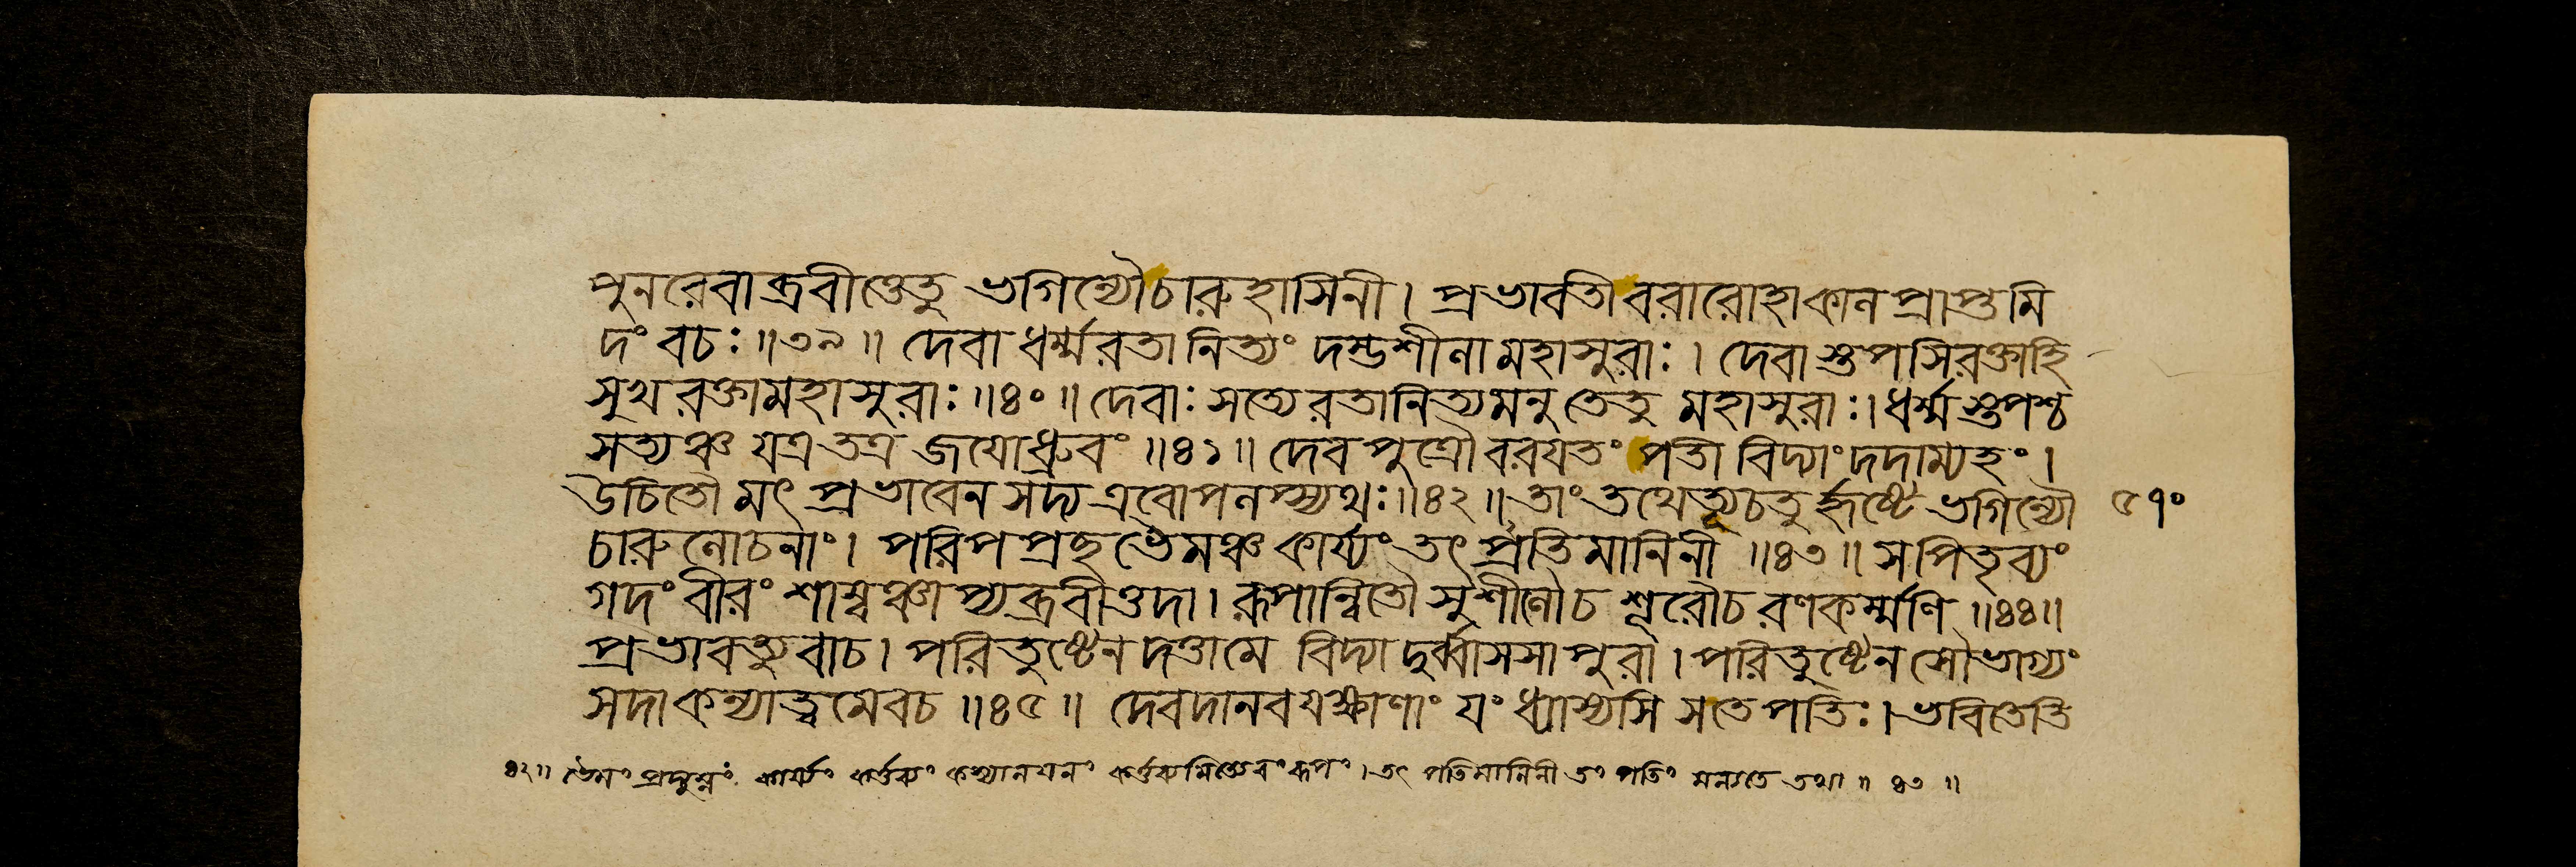 পুনরেবাব্রবীত্তেতু ভগিন্যৌচারুহাসিনী। প্রভাবতী বরারোহাকালপ্রাপ্তমি
দং বচঃ॥৩৯॥ দেবা ধর্ম্মরতা নিত্যং দম্ভশীলা মহাসুরাঃ। দেবাস্তপসিরক্তাহি
সুখরক্তামহাসুরাঃ॥৪০॥ দেবাঃ সত্যেরতানিত্যমনৃতেতু মহাসুরাঃ। ধর্ম্মস্তপশ্চ
সত্যঞ্চ যত্রতত্র জয়োধ্রুবং॥৪১॥ দেবপুত্রৌ বরযতং পতী বিদ্যাং দদাম্যহং।
উচিতৌ মৎ প্রভাবেন সদ্য এবোপলপ্স্যথঃ॥৪২॥ তাং তথেত্যূচতুর্হৃষ্টে ভগিন্যৌ ৫৭০
চারুলোচনাং। পরিপপ্রচ্ছ ভৈমঞ্চ কার্য্যং তৎ প্রতিমানিনী॥৪৩॥ সপিতৃব্যং
গদং বীরং শাম্বঞ্চাপ্যব্রবীত্তদা। রূপান্বিতৌ সুশীলৌচ শূরৌচ রণকর্ম্মণি॥৪৪॥
প্রভাবত্যুবাচ। পরিতুষ্টেন দত্তামে বিদ্যা দুর্ব্বাসসা পুরা। পরিতুষ্টেন সৌভাগ্যং
সদাকন্যাত্বমেবচ॥৪৫॥ দেবদানবযক্ষাণাং যং ধ্যাস্যসি সতে পতিঃ। ভবিতেতি
৪২॥ ভৈমং প্রদ্যুম্নং কার্য্যং কর্ত্তব্যং কন্যানয়নং কর্ত্তব্যমিত্যেবংরূপং। তৎ পতিমানিনী তং পতিং মন্যতে তথা॥ ৪৩॥